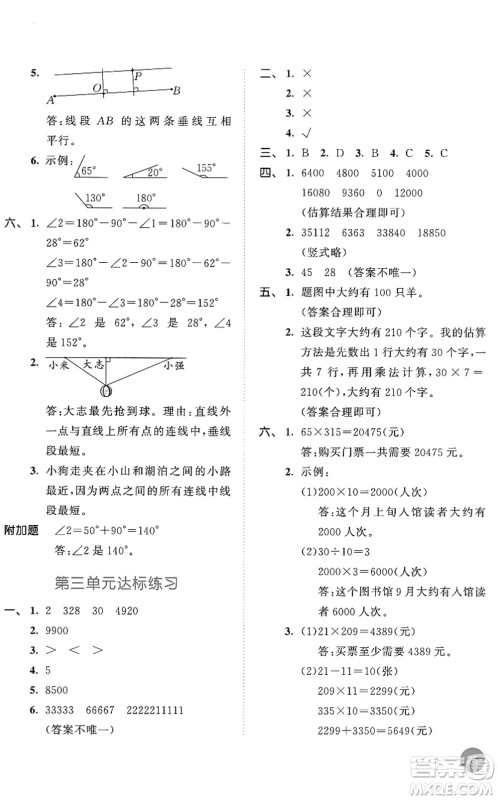 5.
P
O
A
B
答:线段 AB 的这两条垂线互相
平行。
6. 示例:
65° 20° 155°
130° 180°
六、1. ∠2=180°-90°-∠1=180°-90°-
28°=62°
∠3=180°-∠2-90°=180°-62°-90°
=28°
∠4=180°-∠3=180°-28°=152°
答:∠2 是 62°,∠3 是 28°,∠4 是
152°。
2.
小米 大志 小强
答:大志最先抢到球。理由:由直线
外一点与直线上所有点的连线中,垂线
段最短。
3. 小狗走夹在小山和湖泊之间的小路
最近,因为两点之间的所有连线中线
段最短。
附加题 ∠2=50°+90°=140°
答:∠2 是 140°。
第三单元达标练习
一、1. 2 328 30 4920
2. 9900
3. > < >
4. 5
5. 8500
6. 33333 66667 2222211111
(答案不唯一)
二、1. ×
2. ×
3. ×
4. √
三、1. B 2. D 3. B 4. C 5. C
四、1. 6400 4800 5100 4000
16080 9030 6000 12000
(估算结果合理即可)
2. 35112 6363 33840 18850
(竖式略)
3. 45 28 (答案不唯一)
五、1. 题图中大约有 100 只羊。
(答案合理即可)
2. 这段文字大约有 210 个字。我的估算
方法是先数出 1 行大约有 30 个字,一
共 7 行,再用乘法计算,30×7=
210(个),大约有 210 个字。
(答案合理即可)
六、1. 65×315=20475(元)
答:购买门票一共需要 20475 元。
2. 示例:
(1)200×10=2000(人次)
答:这个月上旬入馆读者大约有
2000 人次。
(2)30÷10=3
2000×3=6000(人次)
答:这个图书馆 9 月大约有读者
6000 人次。
3. (1)21×209=4389(元)
答:买票至少需要 4389 元。
(2)21-11=10(张)
209×11=2299(元)
335×10=3350(元)
2299+3350=5649(元)